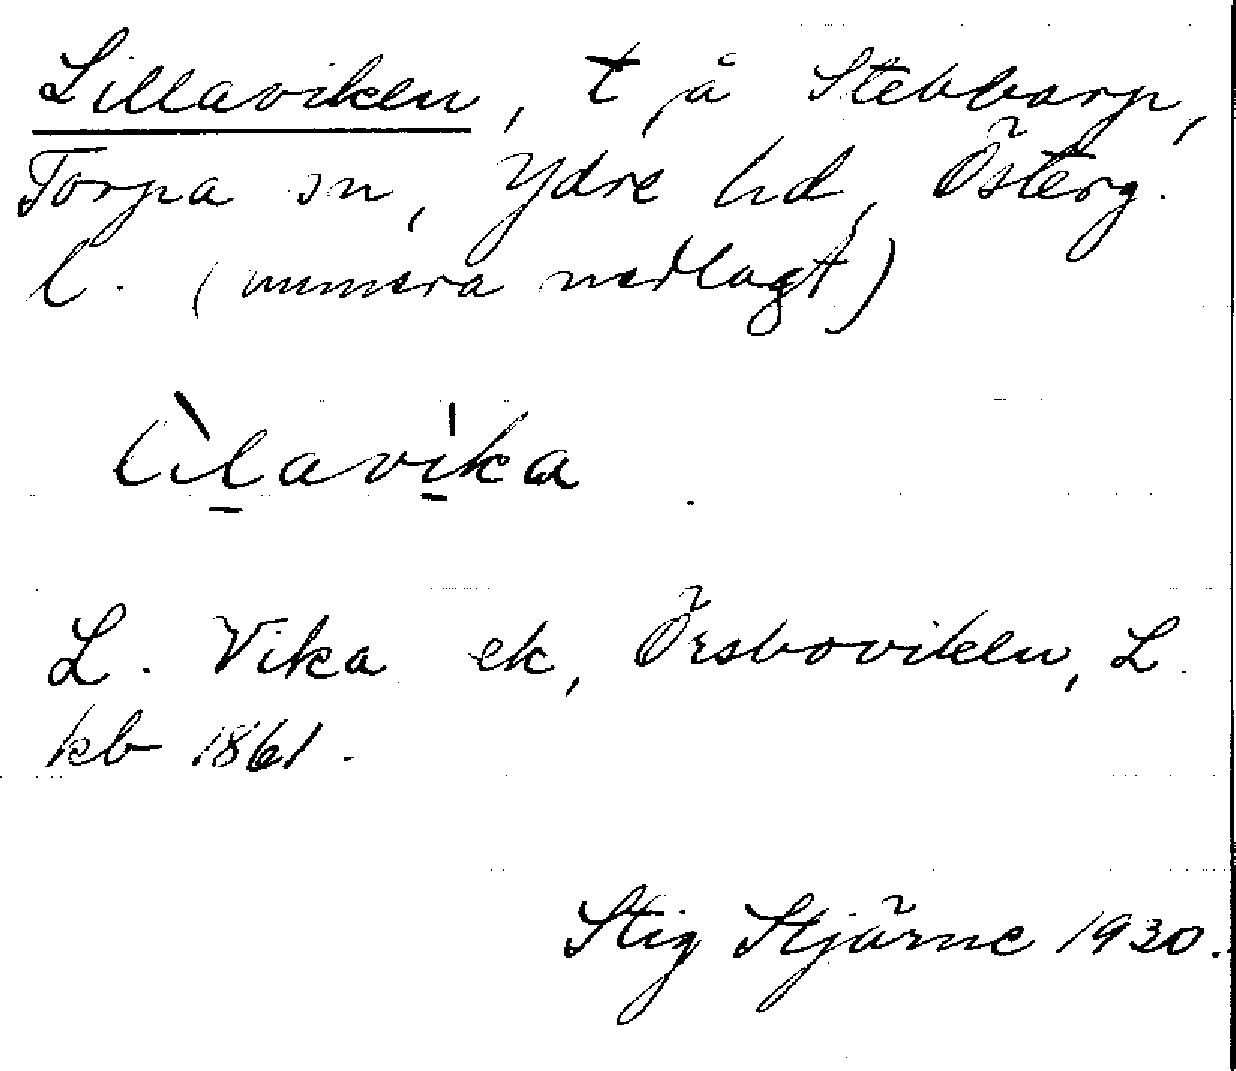 Lillaviken, t på Stebbarp,
Torpa sn, Ydre hd, Österg.
l. (numera nedlagt)
lìl̲avi̲̍ka
L. Vika ek, Örsboviken, L
kb 1861.
Stig Stjärne 1930.